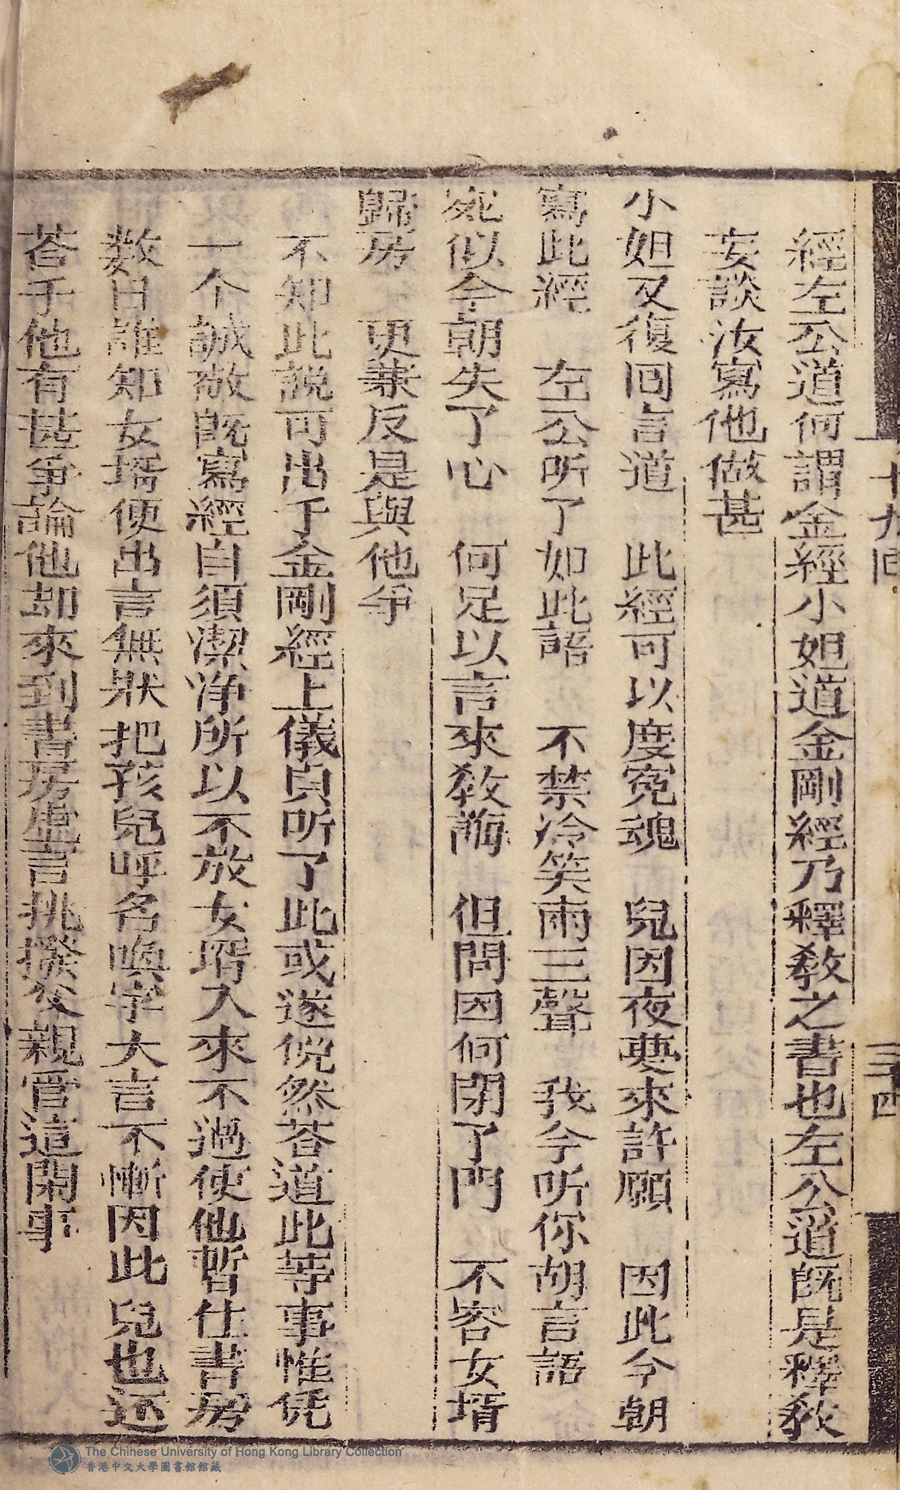 十九回
三十四
經左公道何謂金經小妲道金剛經乃釋教之書也左公道既是釋教
妄談汝寫他做甚
小妲又復回言道　此經可以度冤魂　兒因夜夢來許願　因此今朝
寫此經　左公听了如此語　不禁冷笑兩三聲　我今听你胡言語
宛似今朝失了心　何足以言來教誨　但問因何閉了門　不容女壻
歸房　更兼反是與他爭
不知此説可出于金剛經上儀貞听了此或遂恍然荅道此等事惟凭
一个誠敬既寫經自須潔净所以不放女壻入來不過使他暫住書房
数日誰知女壻便出言無狀把孩兒呼名喚字大言不慚因此兒也还
荅于他有甚爭論他却來到書房虛言挑撥父親管這閑事
The Chinese University of Hong Kong Library Collection
香港中文大學圖書館館藏